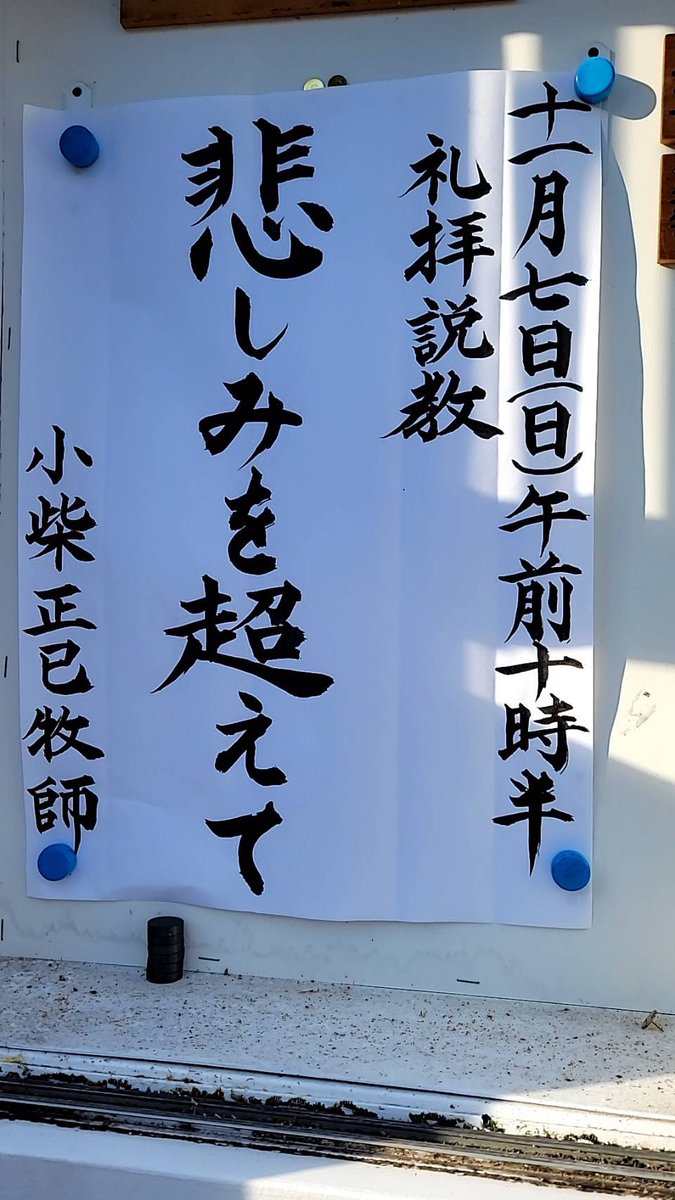 十一月七日(日)午前十時半
礼拝説教
悲しみを超えて
小柴正己牧師